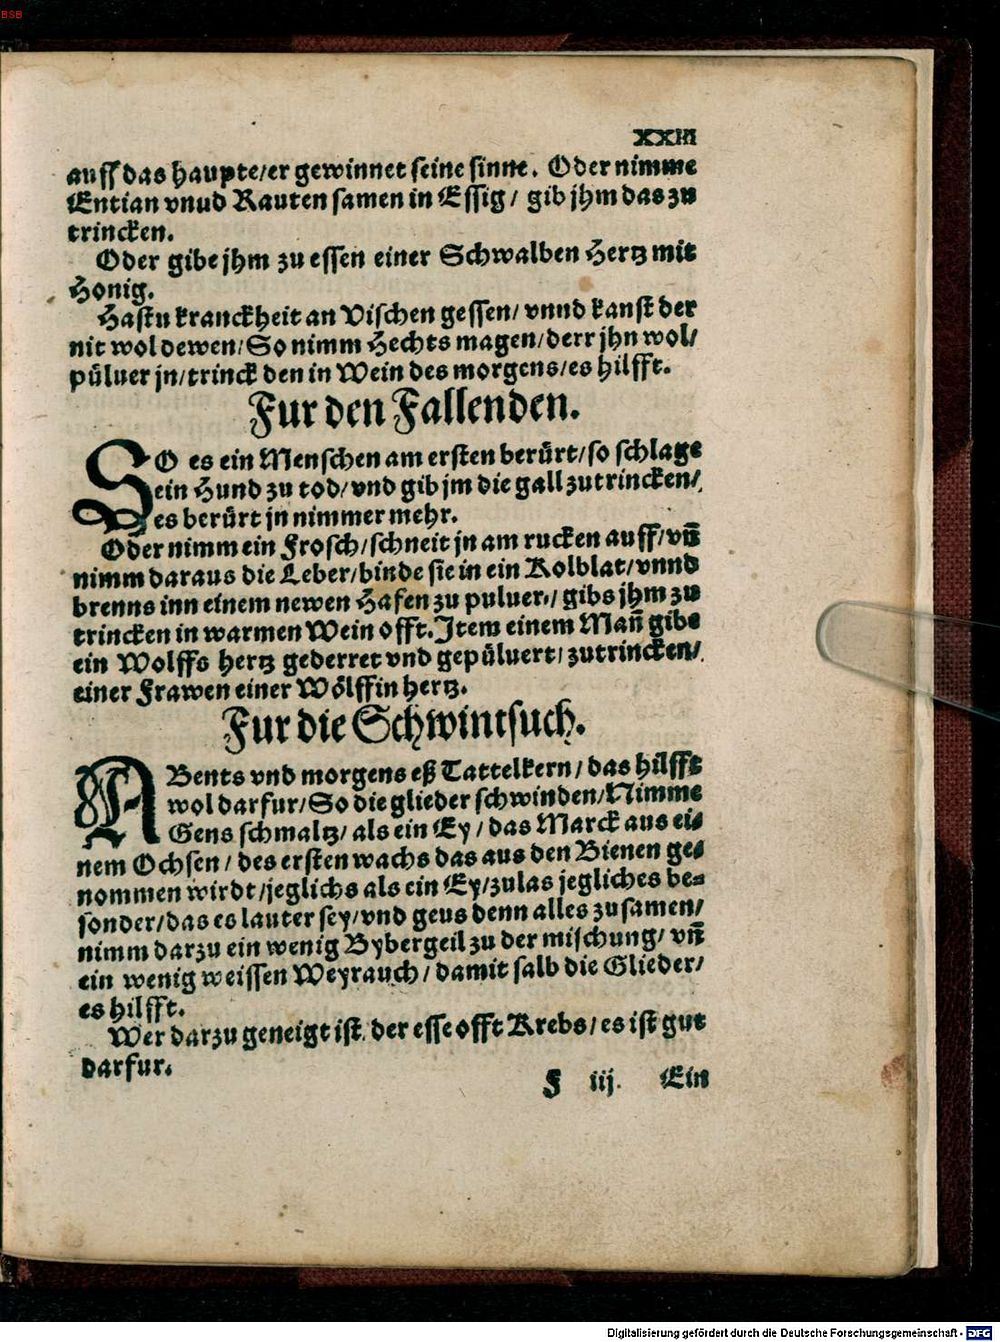 BSB
XXIII
auff das haupte/er gewinnet seine sinne. Oder nimme
Entian vnud Rauten samen in Essig/ gib jhm das zu
trincken.
Oder gibe jhm zu essen einer Schwalben Hertz mit
Honig.
Hastu kranckheit an Vischen gessen/ vnnd kanst der
nit wol dewen/So nimm Hechts magen/derr jhn wol/
pülver jn/trinck den in Wein des morgens/es hilfft.
Fur den Fallenden.
SO es ein Menschen am ersten berürt/so schlage
ein Hund zu tod/vnd gib jm die gall zutrincken/
es berürt jn nimmer mehr.
Oder nimm ein Frosch/schneit jn am rucken auff/vñ
nimm daraus die Leber/binde sie in ein Kolblat/vnnd
brenns inn einem newen Hafen zu puluer,/ gibs jhm zu
trincken in warmen Wein offt. Item einem Mañ gibe
ein Wolffs hertz gederret vnd gepüluert/ zutrincken/
einer Frawen einer Wölffin hertz.
Fur die Schwintsuch.
ABents vnd morgens eß Tattelkern/das hilfft
wol darfur/So die glieder schwinden/Nimme
Gens schmaltz/ als ein Ey/das Marck aus ei-
nem Ochsen/des ersten wachs das aus den Bienen ge-
nommen wirdt/jeglichs als ein Ey/zulas jegliches be-
sonder/das es lauter sey/vnd geus denn alles zusamen/
nimm darzu ein wenig Bybergeil zu der mischung/ vñ
ein wenig weissen Weyrauch/damit salb die Glieder/
es hilfft.
Wer darzu geneigt ist. der esse offt Krebs/es ist gut
darfur.
F iij. Ein
Digitalisierung gefördert durch die Deutsche Forschungsgemeinschaft - DFG